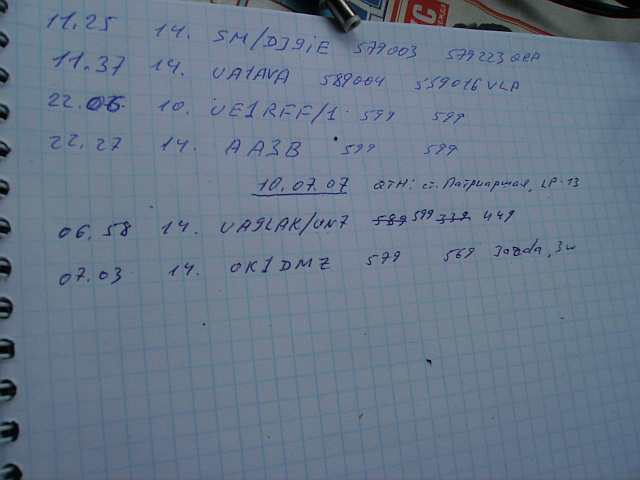 11.25 14. SM/DJ9IE 579003 579223 QRP
11.37 14. UA1AVA 589004 559016 VLA
22.06 10. UE1RFF/1 599 599
22.27 14. AA3B 599 599
10.07.07 QTH: ст. Патриаршая, LP-13
06.58 14. UA9LAK/UN7 589 599 339 449
07.03 14. OK1DMZ 579 569 3w